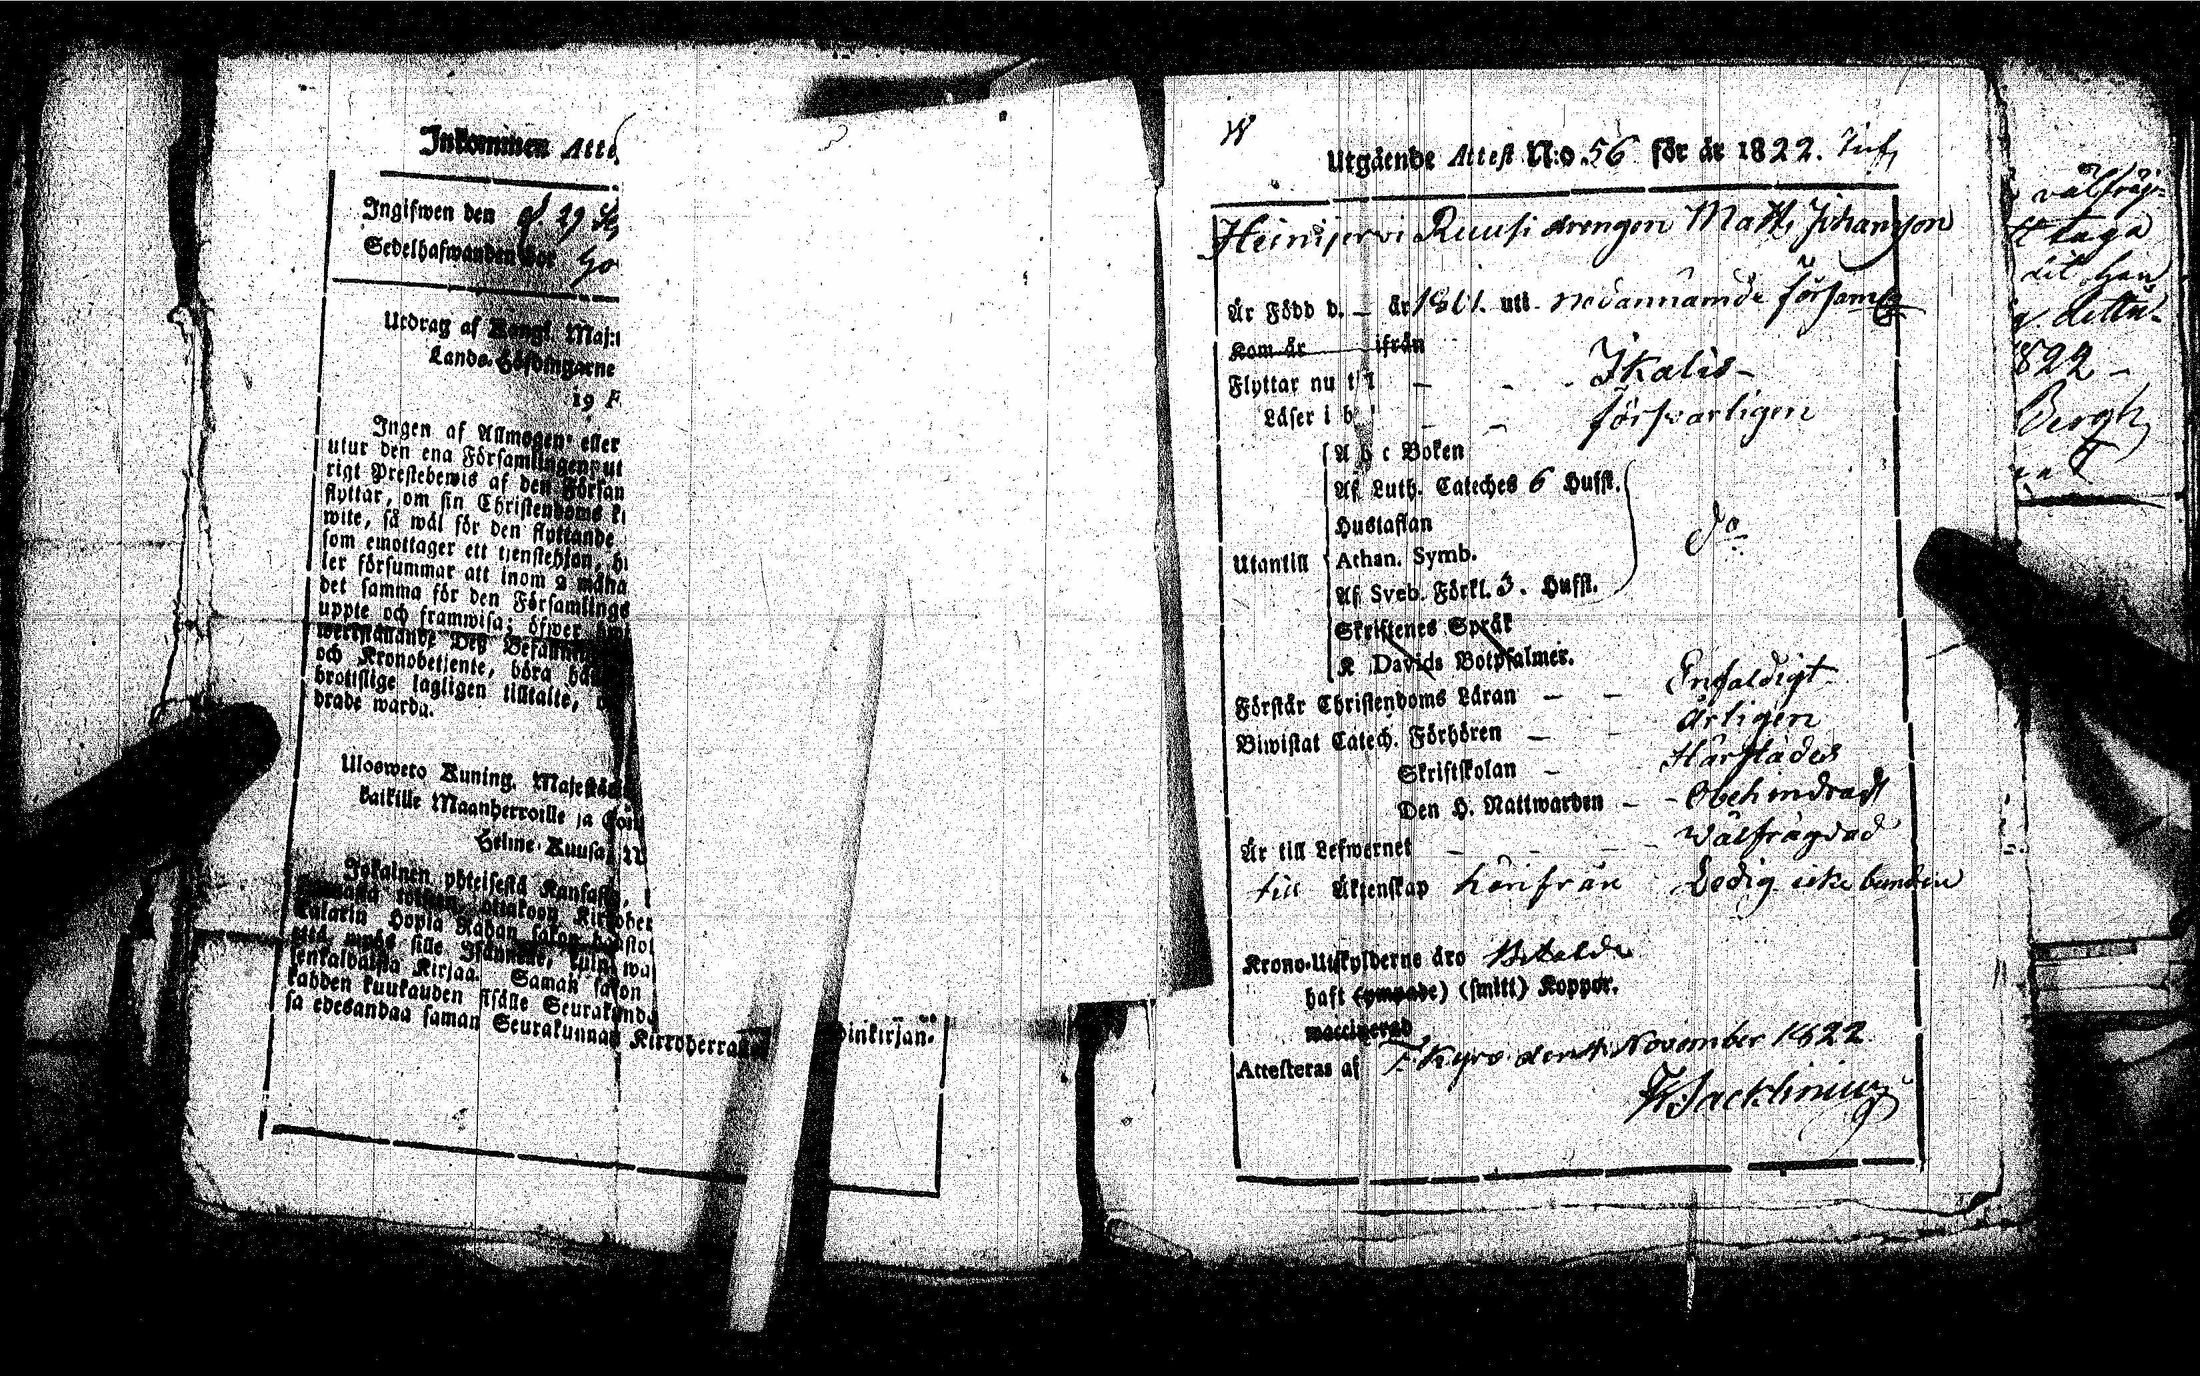 Inkommen Atte
Ingifwen den d. 29
Sedelhafwanden bor
Utdrag af Kongl. Maj:t
Lands-Höfdingarne
19 F
Ingen af Allmogen eller
utur den ena Församlingen ut
rigt Prestebewis af den Försam
flyttar, om sin Christendoms k
wite, så wäl för den flyttande
som emottager ett tjenstehjon, h
ler försummar att inom 2 måna
det samma för den Församlings
uppte och framwisa; öfwer
werkställande Deß Befallning
och Kronobetjente, böra
brottslige lagligen tilltalte,
drade warda.
Ulosweto Kuning. Majestä
kaikille Maanherroille ja
Helme-Kuusa
Jokainen yhteisestä Kansasta,
Kirkoher
Kalarin Hopia Rahan sakon
sille Isännälle, kuin wa
senkaldaista Kirjaa. Saman sakon
kahden kuukauden sisälle Seurakunda
sa edesandaa saman Seurakunnan Kirkoherra
inkirjan-
Utgående Attest N:o 56 för år 1822.
Heinijervi Ruusi drengen Matts Johansson
Är Född d. — år 1801. uti nedannämde församlg
Kom år ifrån
Flyttar nu till — - - Ikalis -
Läser i bok — - försvarligen
A b c Boken
Af Luth. Cateches 6 Hufst.
Hustaflan
Utantill Athan. Symb.
do
Af Sveb. Förkl. 3. Hufst.
Skriftenes Språk
K Davids Botpsalmer.
Förstår Christendoms Läran — — Enfaldigt
Biwistat Catech. Förhören — - årligen
Skriftskolan — - Härstädes
Den H. Nattwarden — - Obehindradt
Är till Lefwernet — - - - Wälfrägdad
till Äktenskap härifrån Ledig icke bunden
Krono-Utskylderne äro Betalde
haft (ympade) (smitt) Koppor.
waccinerad
Attesteras af T. Kyro den November 1822
välfräg-
taga
til han
detta
1822 —
Bergh